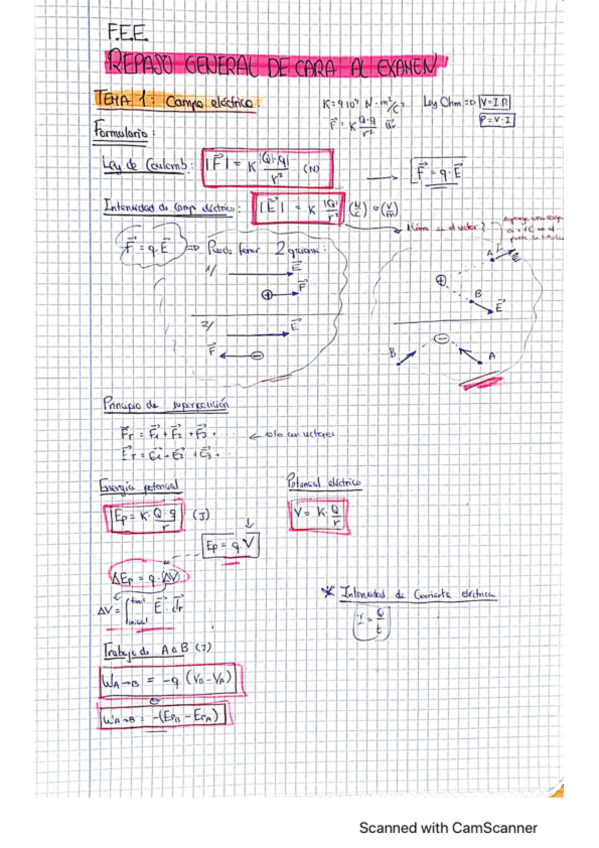 F.E.E.
REPASO GENERAL DE CARA AL EXAMEN
TEMA 1: Campo eléctrico:
K = 9·10⁹ N·m²/C²
Ley Ohm => V = I·R
F⃗ = K Q·q/r² u⃗r
P = V·I
Formulario:
Ley de Coulomb: |F⃗| = K |Q·q|/r² (N) → F⃗ = q·E⃗
Intensidad de campo eléctrico: |E⃗| = K |Q|/r² (N/C) o (V/m)
¿Cómo es el vector?
F⃗ = q·E⃗ => Puede tener 2 
1/ E⃗
⊕ F⃗
2/ E⃗
F⃗ ⊖
A E⃗
⊕
B E⃗
⊖
B A
Principio de superposición
F⃗r = F⃗1 + F⃗2 + F⃗3 ...
← solo con vectores
E⃗r = E⃗1 + E⃗2 + E⃗3 ...
Energía potencial
Potencial eléctrico
Ep = K·Q·q/r (J)
V = K·Q/r
Ep = q·V
ΔEp = q·ΔV
ΔV = ∫ final inicial E⃗·dr⃗
* Intensidad de Corriente eléctrica
I = Q/t
Trabajo de A a B (J)
W A→B = -q (VB - VA)
o
W A→B = -(EpB - EpA)
Scanned with CamScanner